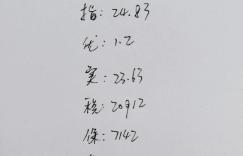 指: 24.83
优: 1.2
实: 23.63
税: 20912
保: 7142